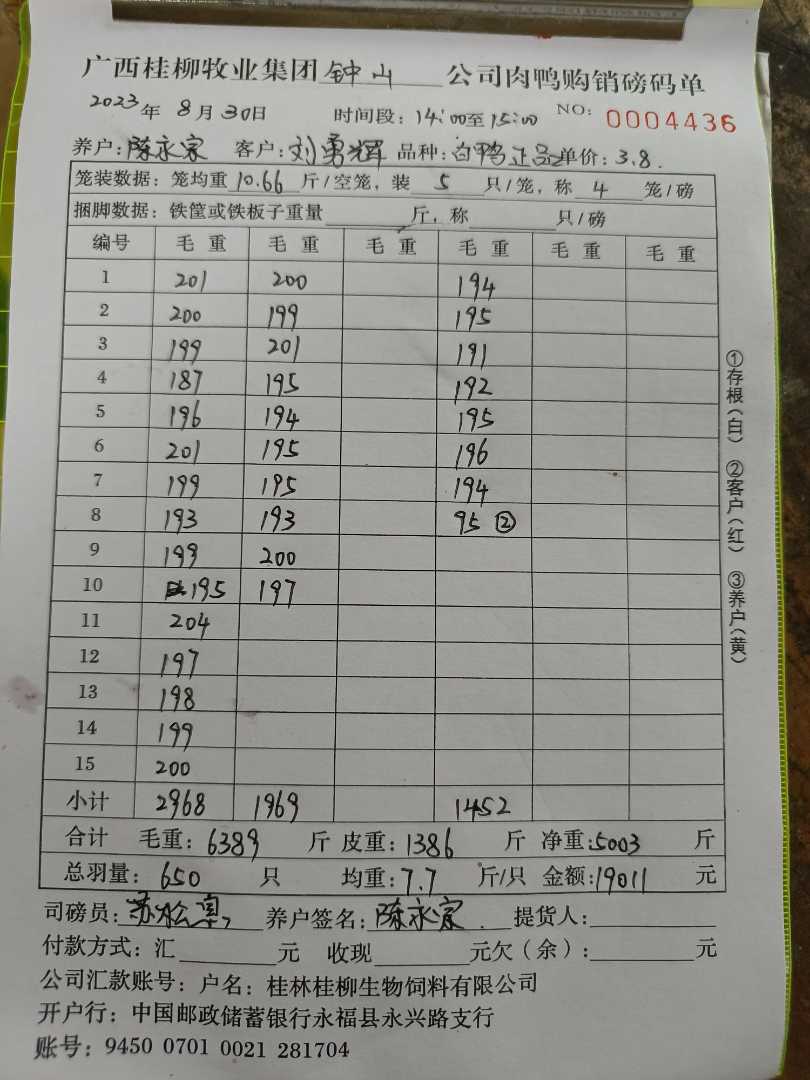 广西桂柳牧业集团钟山公司肉鸭购销磅码单
2023年8月30日 时间段：14:00至15:00 NO: 0004436
养户：陈永家 客户：刘勇辉 品种：白鸭正品 单价：3.8.
笼装数据：笼均重10.66斤/空笼，装5只/笼，称4笼/磅
捆脚数据：铁筐或铁板子重量 斤，称 只/磅
编号 毛重 毛重 毛重 毛重 毛重 毛重
1 201 200 194
2 200 199 195
3 199 201 191
4 187 195 192
5 196 194 195
6 201 195 196
7 199 195 194
8 193 193 95 ②
9 199 200
10 195 197
11 204
12 197
13 198
14 199
15 200
小计 2968 1969 1452
合计 毛重：6389 斤 皮重：1386 斤 净重：5003 斤
总羽量：650 只 均重：7.7 斤/只 金额：19011 元
司磅员：苏松 养户签名：陈永家. 提货人：
付款方式：汇 元 收现 元欠（余）： 元
公司汇款账号：户名：桂林桂柳生物饲料有限公司
开户行：中国邮政储蓄银行永福县永兴路支行
账号：9450 0701 0021 281704
①存根（白） ②客户（红） ③养户（黄）